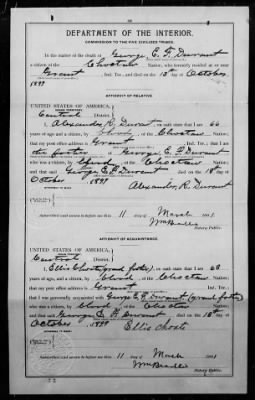 DEPARTMENT OF THE INTERIOR.
COMMISSION TO THE FIVE CIVILIZED TRIBES.
In the matter of the death of George E. F. Durant
a citizen of the Choctaw Nation, who formerly resided at or near
Grant, Ind. Ter., and died on the 15th day of October,
1899
AFFIDAVIT OF RELATIVE.
UNITED STATES OF AMERICA,
INDIAN TERRITORY
Central District.
I, Alexander R. Durant, on oath state that I am 66
years of age and a citizen, by blood, of the Choctaw Nation;
that my post office address is Grant, Ind. Ter.; that I am
the father of George E. F. Durant
who was a citizen, by blood, of the Choctaw Nation;
and that said George E. F. Durant died on the 15 day of
October, 1899
Alexander, R. Durant
Subscribed and sworn to before me this 11 March 1901.
Notary Public.
AFFIDAVIT OF ACQUAINTANCE.
UNITED STATES OF AMERICA,
INDIAN TERRITORY
Central District.
I, Ellis Choate, on oath state that I am 68
years of age, and a citizen by blood of the Choctaw Nation;
that my post office address is Grant, Ind. Ter.;
that I was personally acquainted with George E. F. Durant
who was a citizen, by blood, of the Choctaw Nation;
and that said George E. F. Durant died on the 15th day of
October, 1899
Ellis Choate
Subscribed and sworn to before me this 11 March 1901
Notary Public.